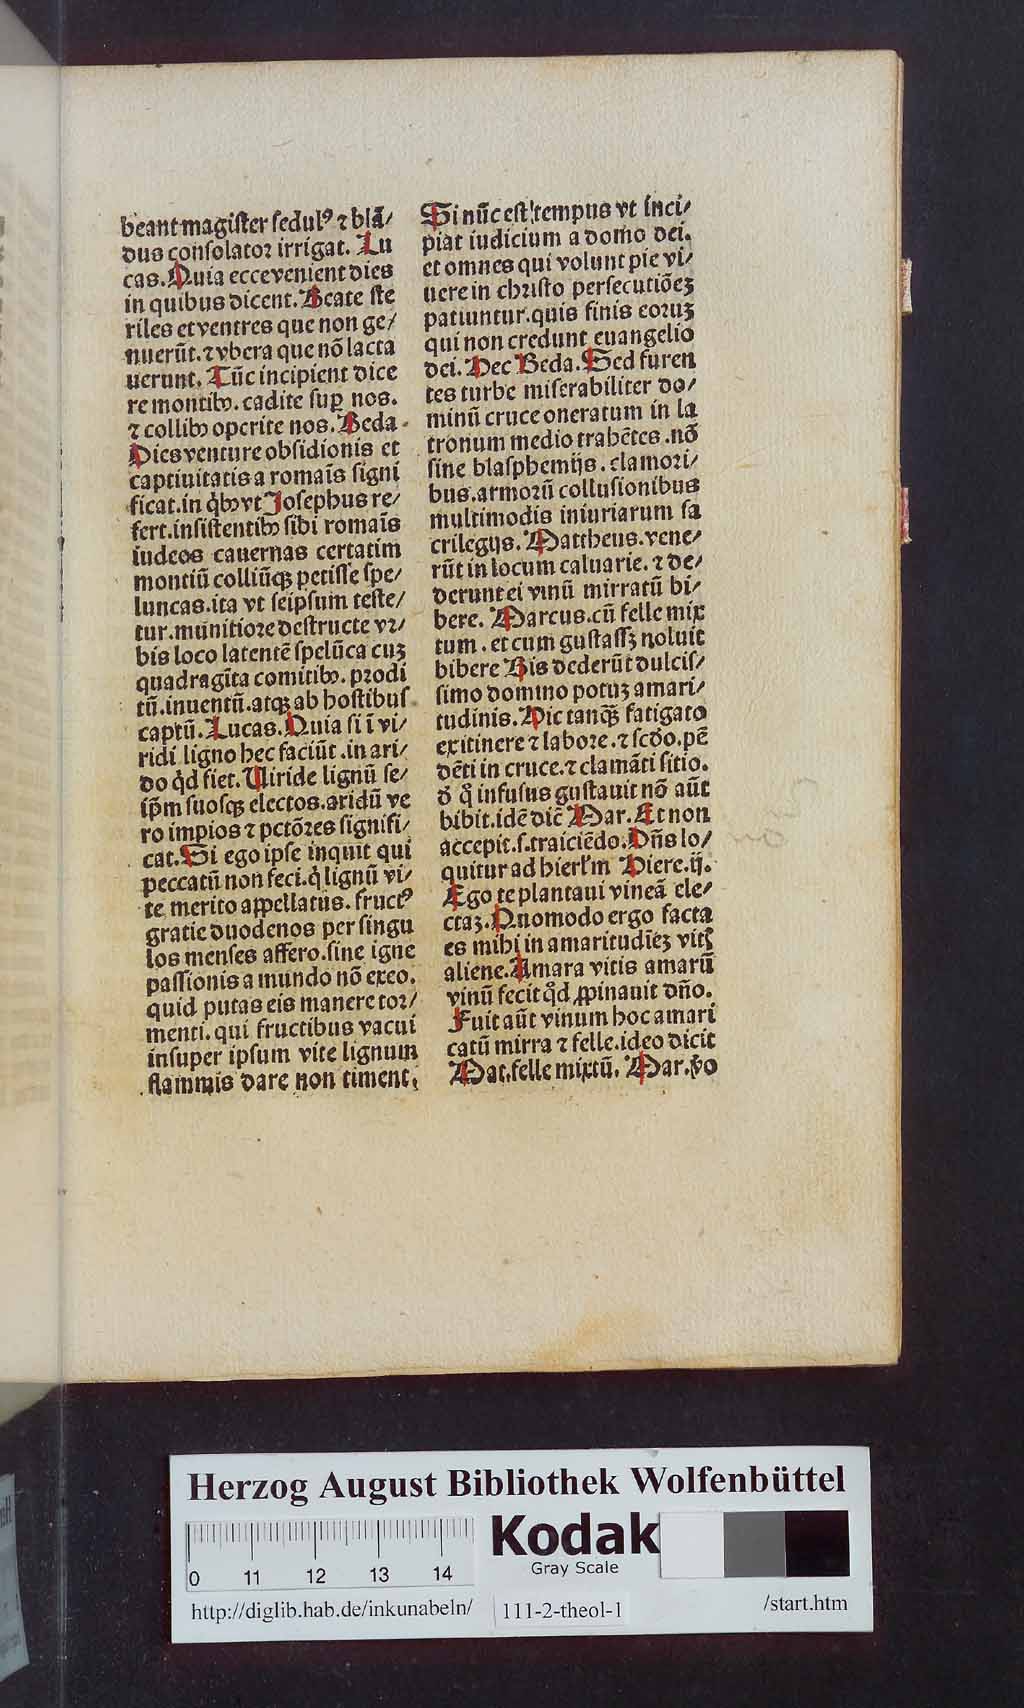 beant magiſter ſedulꝰ ⁊ blā/
dus conſolator irrigat. Lu
cas. Quia ecce venient dies
in quibus dicent. Beate ſte
riles et ventres que non ge/
nuerūt. ⁊ vbera que nō lacta
uerunt. Tūc incipient dice
re montibꝰ. cadite ſuꝑ nos.
⁊ collibꝰ operite nos. Beda.
Dies venture obſidionis et
captiuitatis a romaīs ſigni
ficat. in q̇bꝰ vt Joſephus re/
fert. inſiſtentibꝰ ſibi romaīs
iudeos cauernas certatim
montiū colliūqꝫ petiſſe ſpe/
luncas. ita vt ſeipſum teſte/
tur. munitiore deſtructe vr/
bis loco latentē ſpelūca cuꝫ
quadragīta comitibꝰ. prodi
tū. inuentū. atqꝫ ab hoſtibuſ
captū. Lucas. Quia ſi ī vi/
ridi ligno hec faciūt. in ari/
do q̇d fiet. Viride lignū ſe/
ip̄m ſuoſqꝫ electos. aridū ve
ro impios ⁊ pctōres ſignifi/
cat. Si ego ipſe inquit qui
peccatū non feci. q̇ lignū vi/
te merito appellatus. fructꝰ
gratie duodenos per ſingu
los menſes affero. ſine igne
paſſionis a mundo nō exeo.
quid putas eis manere tor/
menti. qui fructibus vacui
inſuper ipſum vite lignum
flammis dare non timent.
Si nūc eſt tempus vt inci/
piat iudicium a domo dei.
et omnes qui volunt pie vi/
uere in chriſto perſecutiōeꝫ
patiuntur. quis finis eoruꝫ
qui non credunt euangelio
dei. Hec Beda. Sed furen
tes turbe miſerabiliter do/
minū cruce oneratum in la
tronum medio trahētes. nō
ſine blaſphemijs. clamori/
bus. armorū colluſionibus
multimodis iniuriarum ſa
crilegijs. Mattheus. vene/
rūt in locum caluarie. ⁊ de/
derunt ei vinū mirratū bi/
bere. Marcus. cū felle mix
tum. et cum guſtaſſꝫ noluit
bibere His dederūt dulciſ/
ſimo domino potuꝫ amari/
tudinis. Hic tanqꝫ̄ fatigato
ex itinere ⁊ labore. ⁊ ſcḋo. pē
dēti in cruce. ⁊ clamāti ſitio.
ḋ q̊ infuſus guſtauit nō aūt
bibit. idē dic̄ Mar. Et non
accepit. ſ. traiciēdo. Dn̄s lo/
quitur ad hierl̄m Hiere. ij.
Ego te plantaui vineā ele/
ctaꝫ. Quomodo ergo facta
es mihi in amaritudīeꝫ vitꝭ
aliene. Amara vitis amarū
vinū fecit qd̊ ꝓpinauit dn̄o.
Fuit aūt vinum hoc amari
catū mirra ⁊ felle. ideo dicit
Mat. felle mixtū. Mar. v̊o
Herzog August Bibliothek Wolfenbüttel
0 11 12 13 14
Kodak
Gray Scale
http://diglib.hab.de/inkunabeln/
111-2-theol-1
/start.htm